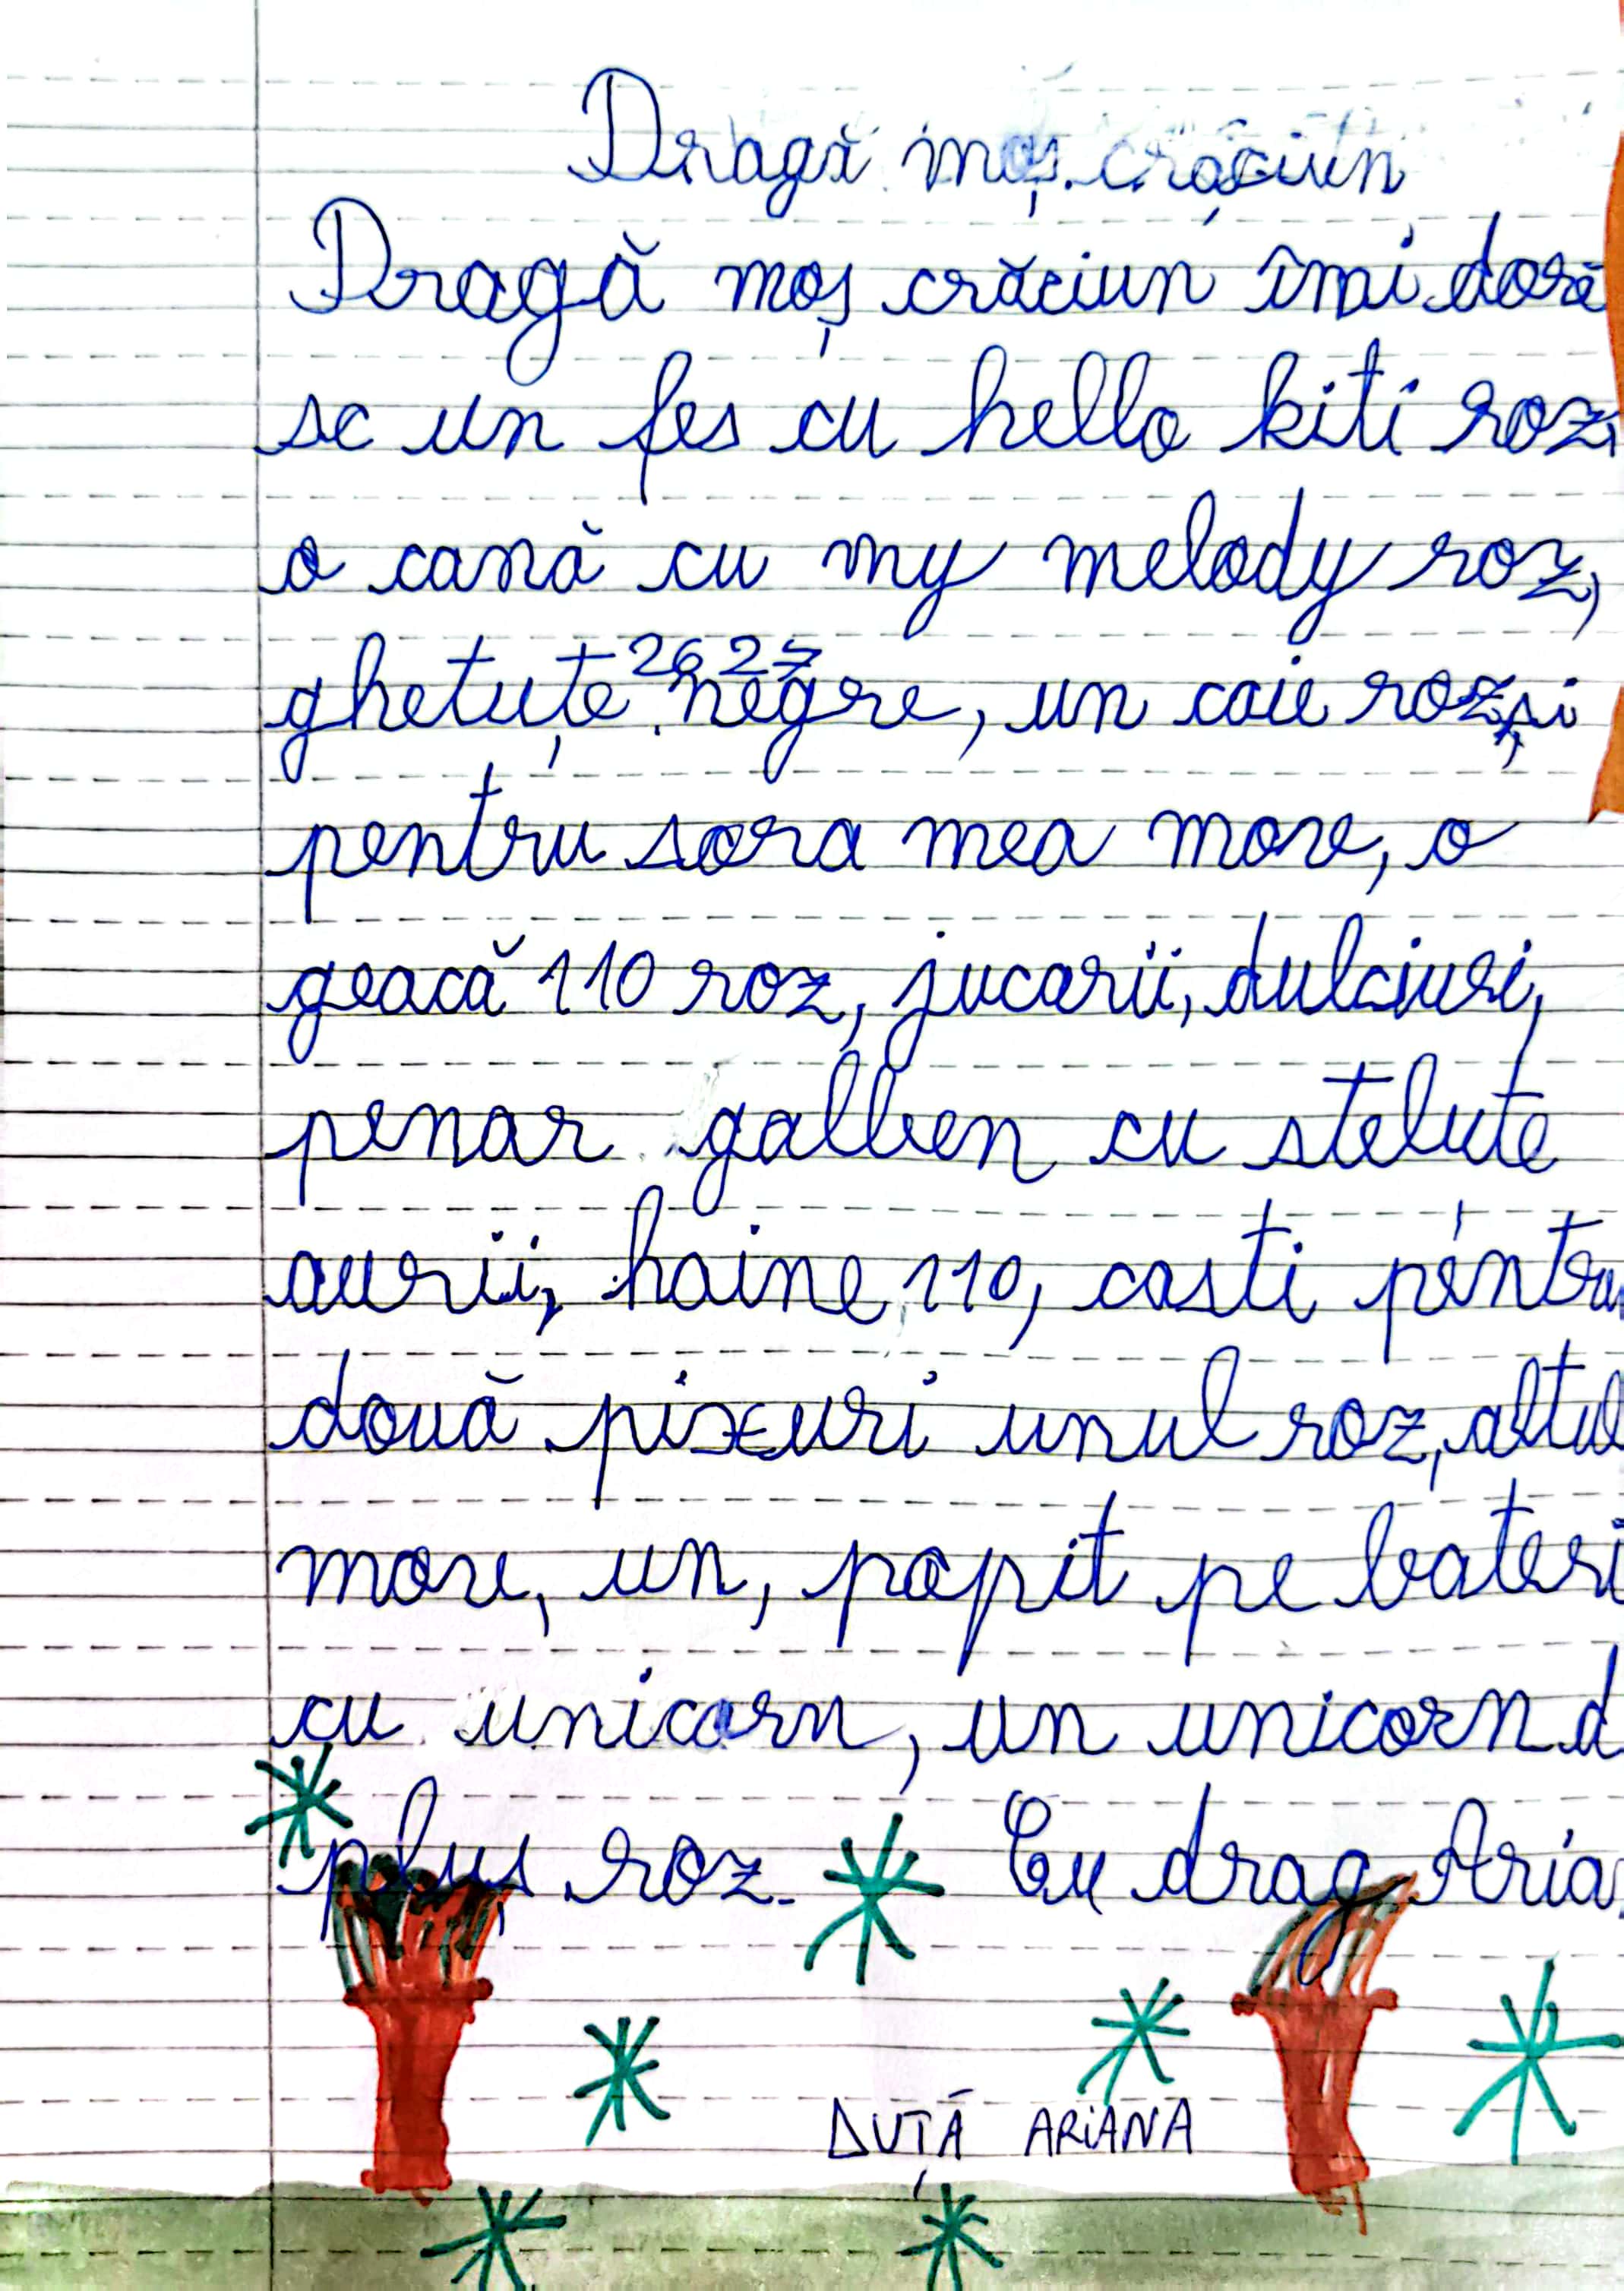 Dragă moș crăciun
Dragă moș crăciun îmi dore
sc un fes cu hello kiti roz,
o cană cu my melody roz,
ghetuțe 26 27 negre, un caie roz, și
pentru sora mea mov, o
geacă 110 roz, jucarii, dulciuri,
penar galben cu stelute
aurii, haine 110, casti pentru
două pixuri unul roz, altul
mov, un, popit pe bateri
cu unicorn, un unicorn d
pluș roz. Cu drag Aria
DUȚĂ ARIANA